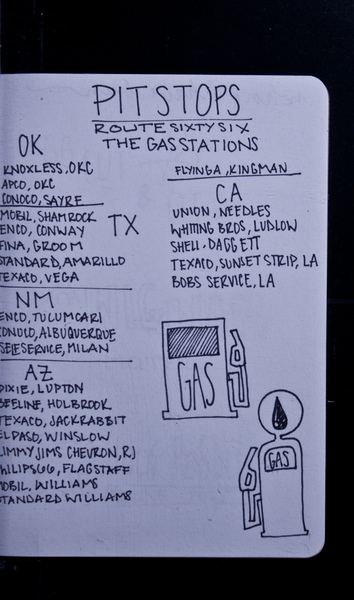 PIT STOPS
ROUTE SIXTY SIX
THE GAS STATIONS
OK
KNOXLESS, OKC
APCO, OKC
CONOCO, SAYRE
TX
MOBIL, SHAMROCK
ENCO, CONWAY
FINA, GROOM
STANDARD, AMARILLO
TEXACO, VEGA
NM
ENCO, TUCUMCARI
CONOCO, ALBUQUERQUE
SELF SERVICE, MILAN
AZ
DIXIE, LUPTON
BEELINE, HOLBROOK
TEXACO, JACKRABBIT
ELPASO, WINSLOW
JIMMY JIMS CHEVRON, RJ
PHILIPS 66, FLAGSTAFF
MOBIL, WILLIAMS
STANDARD WILLIAMS
FLYING A, KINGMAN
CA
UNION, NEEDLES
WHITING BROS, LUDLOW
SHELL, DAGGETT
TEXACO, SUNSET STRIP, LA
BOBS SERVICE, LA
GAS
GAS